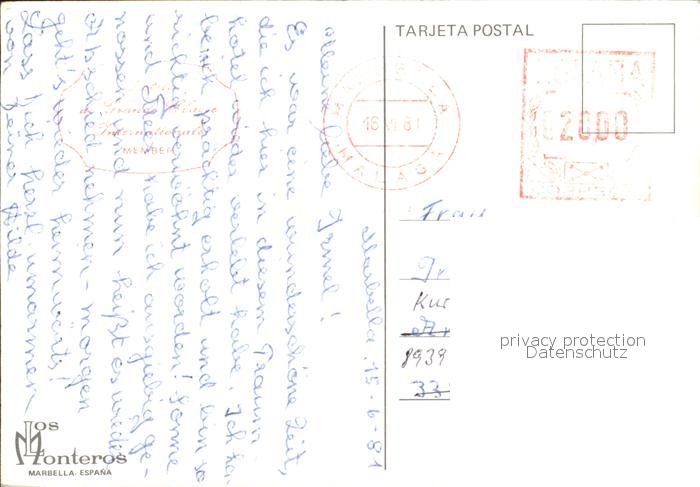 TARJETA POSTAL
MARBELLA
16 VI 81
MALAGA
02600
Marbella, 15-6-81
Meine liebe Irmel!
Es war eine wunderschöne Zeit,
die ich hier in diesem Traum-
hotel wieder verlebt habe. Ich
bin prächtig erholt und bin so
richtig verwöhnt worden! Sonne
und Meer habe ich ausgiebig ge-
nossen und nun heißt es wieder
Abschied nehmen - morgen
geht's wieder heimwärts!
Lass Dich herzl. umarmen
von Deiner Hilde
Grandes
Internationale
MEMBER
Frau
Kur
8939
33
privacy protection
Datenschutz
Los
Monteros
MARBELLA - ESPAÑA